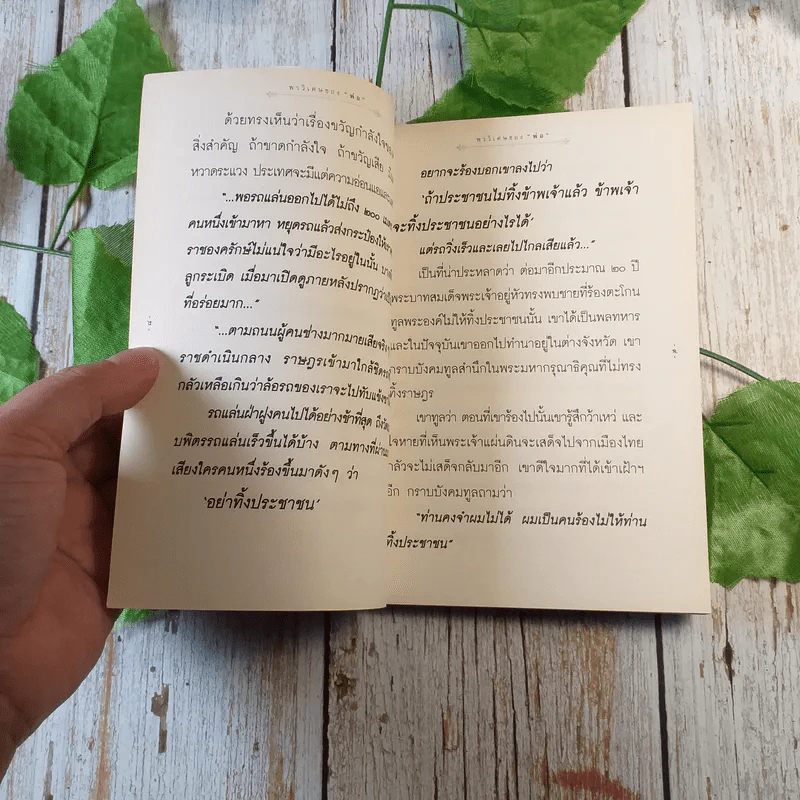 พรวิเศษของ "พ่อ"
ด้วยทรงเห็นว่าเรื่องขวัญกำลังใจของ
สิ่งสำคัญ ถ้าขาดกำลังใจ ถ้าขวัญเสีย
หวาดระแวง ประเทศจะมีแต่ความอ่อนแอและ
"...พอรถแล่นออกไปได้ไม่ถึง ๒๐๐ เมตร
คนหนึ่งเข้ามาหา หยุดรถแล้วส่งกระป๋องให้เรา
ราชองครักษ์ไม่แน่ใจว่ามีอะไรอยู่ในนั้น
ลูกระเบิด เมื่อมาเปิดดูภายหลังปรากฏว่า
ที่อร่อยมาก..."
"...ตามถนนผู้คนช่างมากมายเสียจริงๆ
ราชดำเนินกลาง ราษฎรเข้ามาใกล้ชิดรถ
กลัวเหลือเกินว่าล้อรถของเราจะไปทับแข้ง
รถแล่นฝ่าฝูงคนไปได้อย่างช้าที่สุด ถึงวัด
บพิตรรถแล่นเร็วขึ้นได้บ้าง ตามทางที่ผ่านมา
เสียงใครคนหนึ่งร้องขึ้นมาดังๆ ว่า
'อย่าทิ้งประชาชน'
พรวิเศษของ "พ่อ"
อยากจะร้องบอกเขาลงไปว่า
'ถ้าประชาชนไม่ทิ้งข้าพเจ้าแล้ว ข้าพเจ้า
จะทิ้งประชาชนอย่างไรได้'
แต่รถวิ่งเร็วและเลยไปไกลเสียแล้ว..."
เป็นที่น่าประหลาดว่า ต่อมาอีกประมาณ ๒๐ ปี
พระบาทสมเด็จพระเจ้าอยู่หัวทรงพบชายที่ร้องตะโกน
ทูลพระองค์ไม่ให้ทิ้งประชาชนนั้น เขาได้เป็นพลทหาร
และในปัจจุบันเขาออกไปทำนาอยู่ในต่างจังหวัด เขา
กราบบังคมทูลสำนึกในพระมหากรุณาธิคุณที่ไม่ทรง
ทิ้งราษฎร
เขาทูลว่า ตอนที่เขาร้องไปนั้นเขารู้สึกว้าเหว่ และ
ใจหายที่เห็นพระเจ้าแผ่นดินจะเสด็จไปจากเมืองไทย
กลัวจะไม่เสด็จกลับมาอีก เขาดีใจมากที่ได้เข้าเฝ้าฯ
อีก กราบบังคมทูลถามว่า
"ท่านคงจำผมไม่ได้ ผมเป็นคนร้องไม่ให้ท่าน
ทิ้งประชาชน"